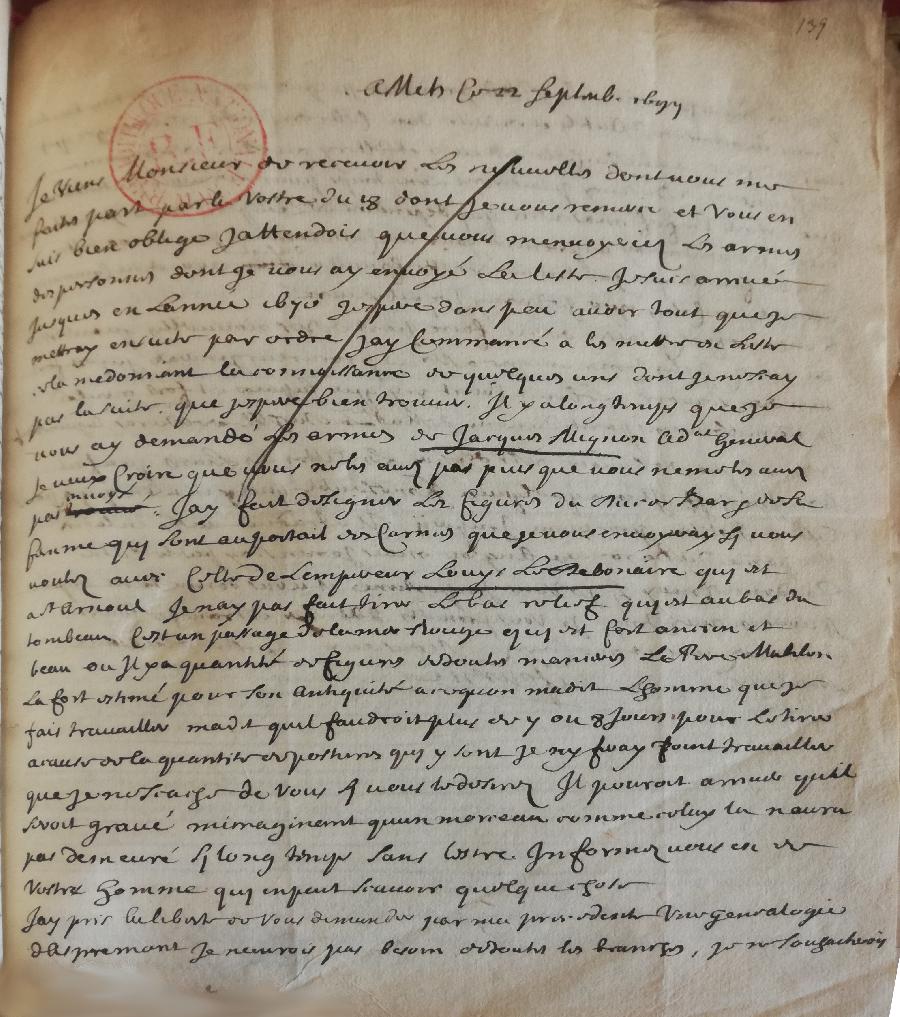 139
a Mets Ce 22 septemb. 1697
Je viens Monsieur de recevoir les nouvelles dont vous me
faites part par la vostre du 18 dont je vous remercie et vous en
suis bien oblige Jattendois que vous menvoyeriez les armes
des personnes dont je vous ay envoyé la liste. Je suis arrivée
jusques en Lannee 1670 jespere dans peu avoir tout que je
mettray en suite par ordre Jay Commancé a les mettre de liste
cela me donnant la connoissance de quelques uns dont je ne scay
pas la suite. que jespere bien trouver. Il y a longtemps que je
vous ay demandé les armes de Jacques Mignon Ad.at General
Je veux Croire que vous ne les avez pas puis que vous ne me les avez
pas envoyé. Jay fait désigner les figures du Duc et de sa
femme qui sont au portail des Carmes que je vous envoyeray sy vous
voulez avec Celle de Lempereur Louys Le Debonaire qui est
a St Arnoul Je nay pas fait tirer le bas relief qui est au bas du
tombeau. C'est un passage de la mer Rouge qui est fort ancien et
beau ou Il y a quantité de figures de toutes manieres Le Pere Mabilon
La fort estimé pour son antiquité a ce quon madit Lhomme que je
fais travailler madit quil faudroit plus de 7 ou 8 Jours pour le tirer
a cause de la quantite de postures qui y sont Je ny feray point travailler
que je ne scache de vous sy vous le desirez Il pouroit arriver quil
seroit gravé mimaginant quun morceau comme celuy la naura
pas demeuré sy long temps sans lestre. Informez vous en de
vostre homme qui en peut scavoir quelque chose
Jay pris la liberte de vous demander par ma precedente une genealogie
daspremont je naurois pas besoin de toutes les branches, je ne souhaiterois